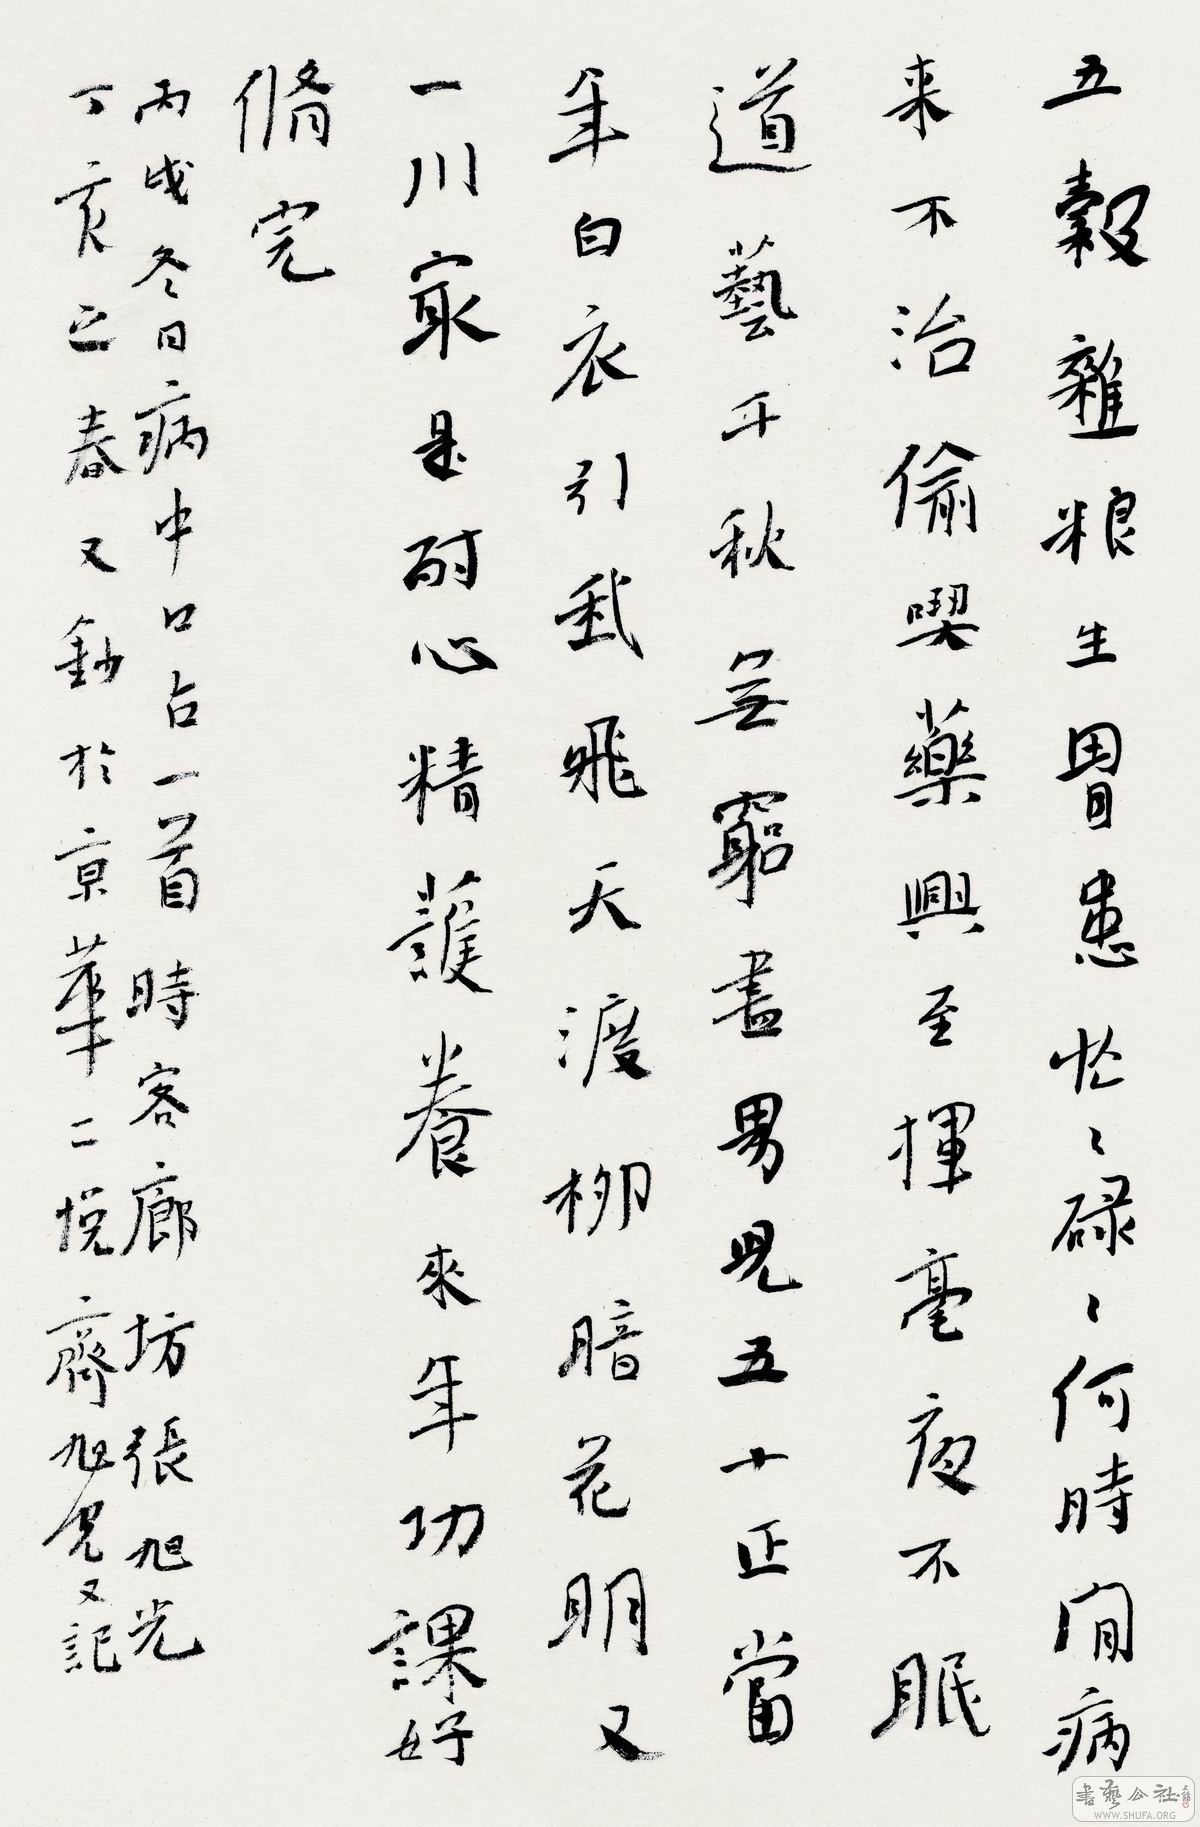 五穀雜粮生胃患忙〻碌〻何時閒病
来不治偷喫藥興至揮毫夜不眠
道藝千秋無窮盡男兒五十正當
年白衣引我飛天渡柳暗花明又
一川寂是耐心精護養來年功課好
脩完
丙戌冬日病中口占一首時客廊坊張旭光
丁亥立春又鈔於京華二悅齋旭光又記
書藝公社
WWW.SHUFA.ORG